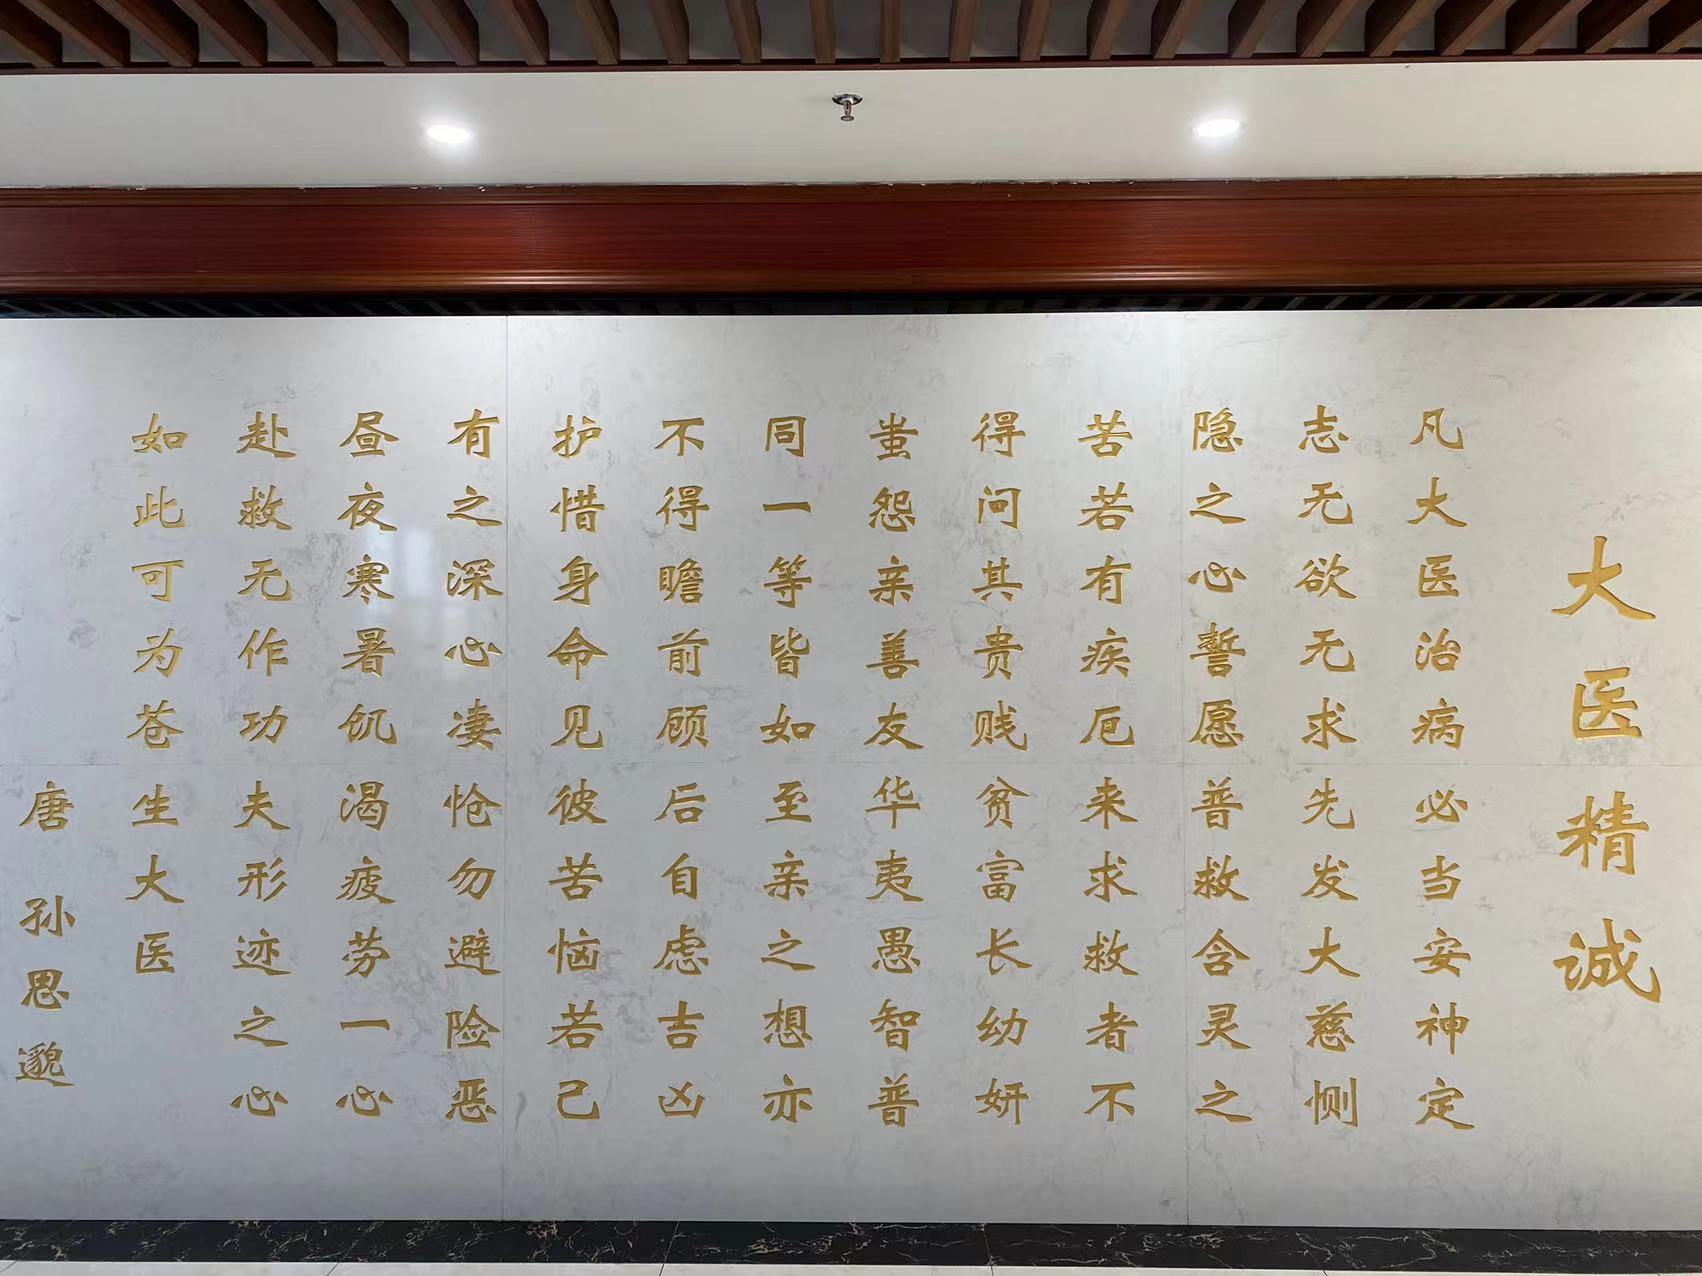 大医精诚
凡大医治病必当安神定
志无欲无求先发大慈恻
隐之心誓愿普救含灵之
苦若有疾厄来求救者不
得问其贵贱贫富长幼妍
蚩怨亲善友华夷愚智普
同一等皆如至亲之想亦
不得瞻前顾后自虑吉凶
护惜身命见彼苦恼若己
有之深心凄怆勿避险恶
昼夜寒暑饥渴疲劳一心
赴救无作功夫形迹之心
如此可为苍生大医
唐 孙思邈